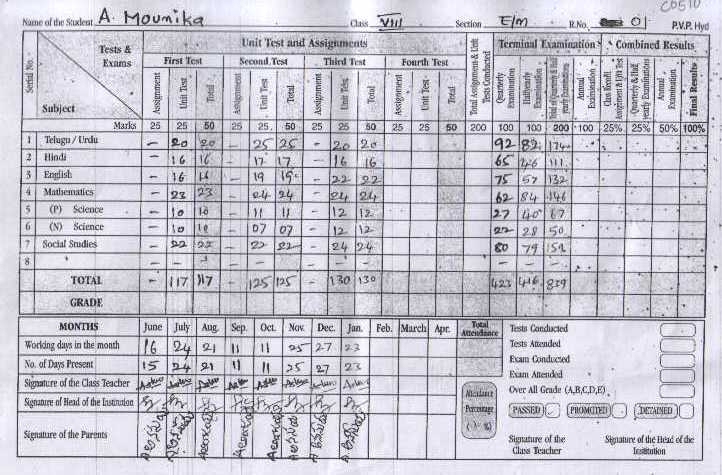 C0510
Name of the Student A. Mounika Class VIII Section E/m R.No. 01 P.V.P. Hyd
Serial No. Tests & Exams Subject Unit Test and Assignments Total Assignment & Unit Tests Conducted Terminal Examination Combined Results Final Results
First Test Second Test Third Test Fourth Test
Assignment Unit Test Total Assignment Unit Test Total Assignment Unit Test Total Assignment Unit Test Total Quarterly Examination Halfyearly Examination Total of Quarterly & Half yearly Examinations Annual Examination Class Benefit Assignment & Unit Test Quarterly & Half yearly Examinations Annual Examination
Marks 25 25 50 25 25 50 25 25 50 25 25 50 200 100 100 200 100 25% 25% 50% 100%
1 Telugu / Urdu - 20 20 - 25 25 - 20 20 92 82 174
2 Hindi - 16 16 - 17 17 - 16 16 65 46 111
3 English - 16 16 - 19 19 - 22 22 75 57 132
4 Mathematics - 23 23 - 24 24 - 24 24 62 84 146
5 (P) Science - 10 10 - 11 11 - 12 12 27 40 67
6 (N) Science - 10 10 - 07 07 - 12 12 22 28 50
7 Social Studies - 22 22 - 22 22 - 24 24 80 79 159
8 - - - - - - - - -
TOTAL - 117 117 125 125 130 130 423 416 839
GRADE
MONTHS June July Aug. Sep. Oct. Nov. Dec. Jan. Feb. March Apr. Total Attendance
Working days in the month 16 24 21 11 11 25 27 23
No. of Days Present 15 24 21 11 11 25 27 23
Signature of the Class Teacher
Signature of Head of the Institution
Signature of the Parents
Attendance Percentage (-)- %)
Tests Conducted
Tests Attended
Exam Conducted
Exam Attended
Over All Grade (A,B,C,D,E)
PASSED PROMOTED DETAINED
Signature of the Class Teacher
Signature of the Head of the Institution